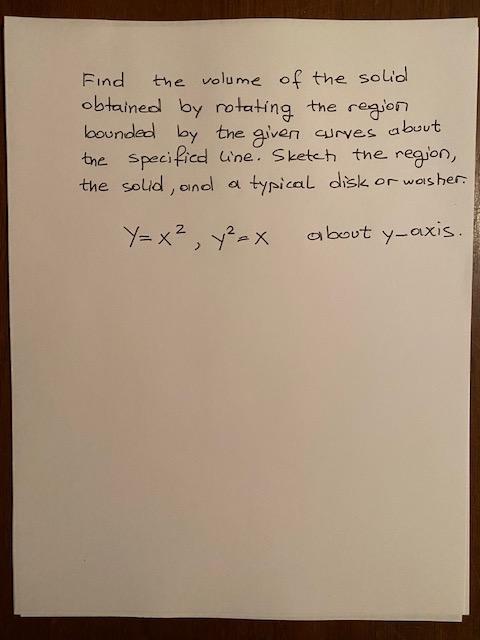 Find the volume of the solid
obtained by rotating the region
bounded by the given curves about
the specified line. Sketch the region,
the solid, and a typical disk or washer.
y=x², y²=x about y-axis.